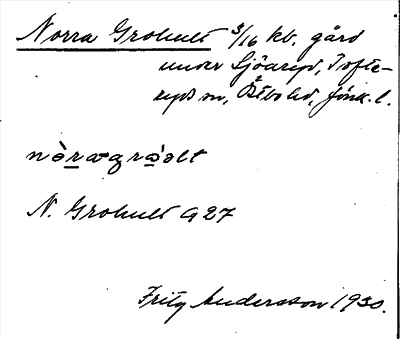 Norra Grohult 3/16 kb. gård
under Sjöaryd, Tofte-
ryds sn, Östbo hd, Jönk. l.
nò̀raɡrǝ̀ǝlt
N. Grohult G 27
Fritz Andersson 1930.